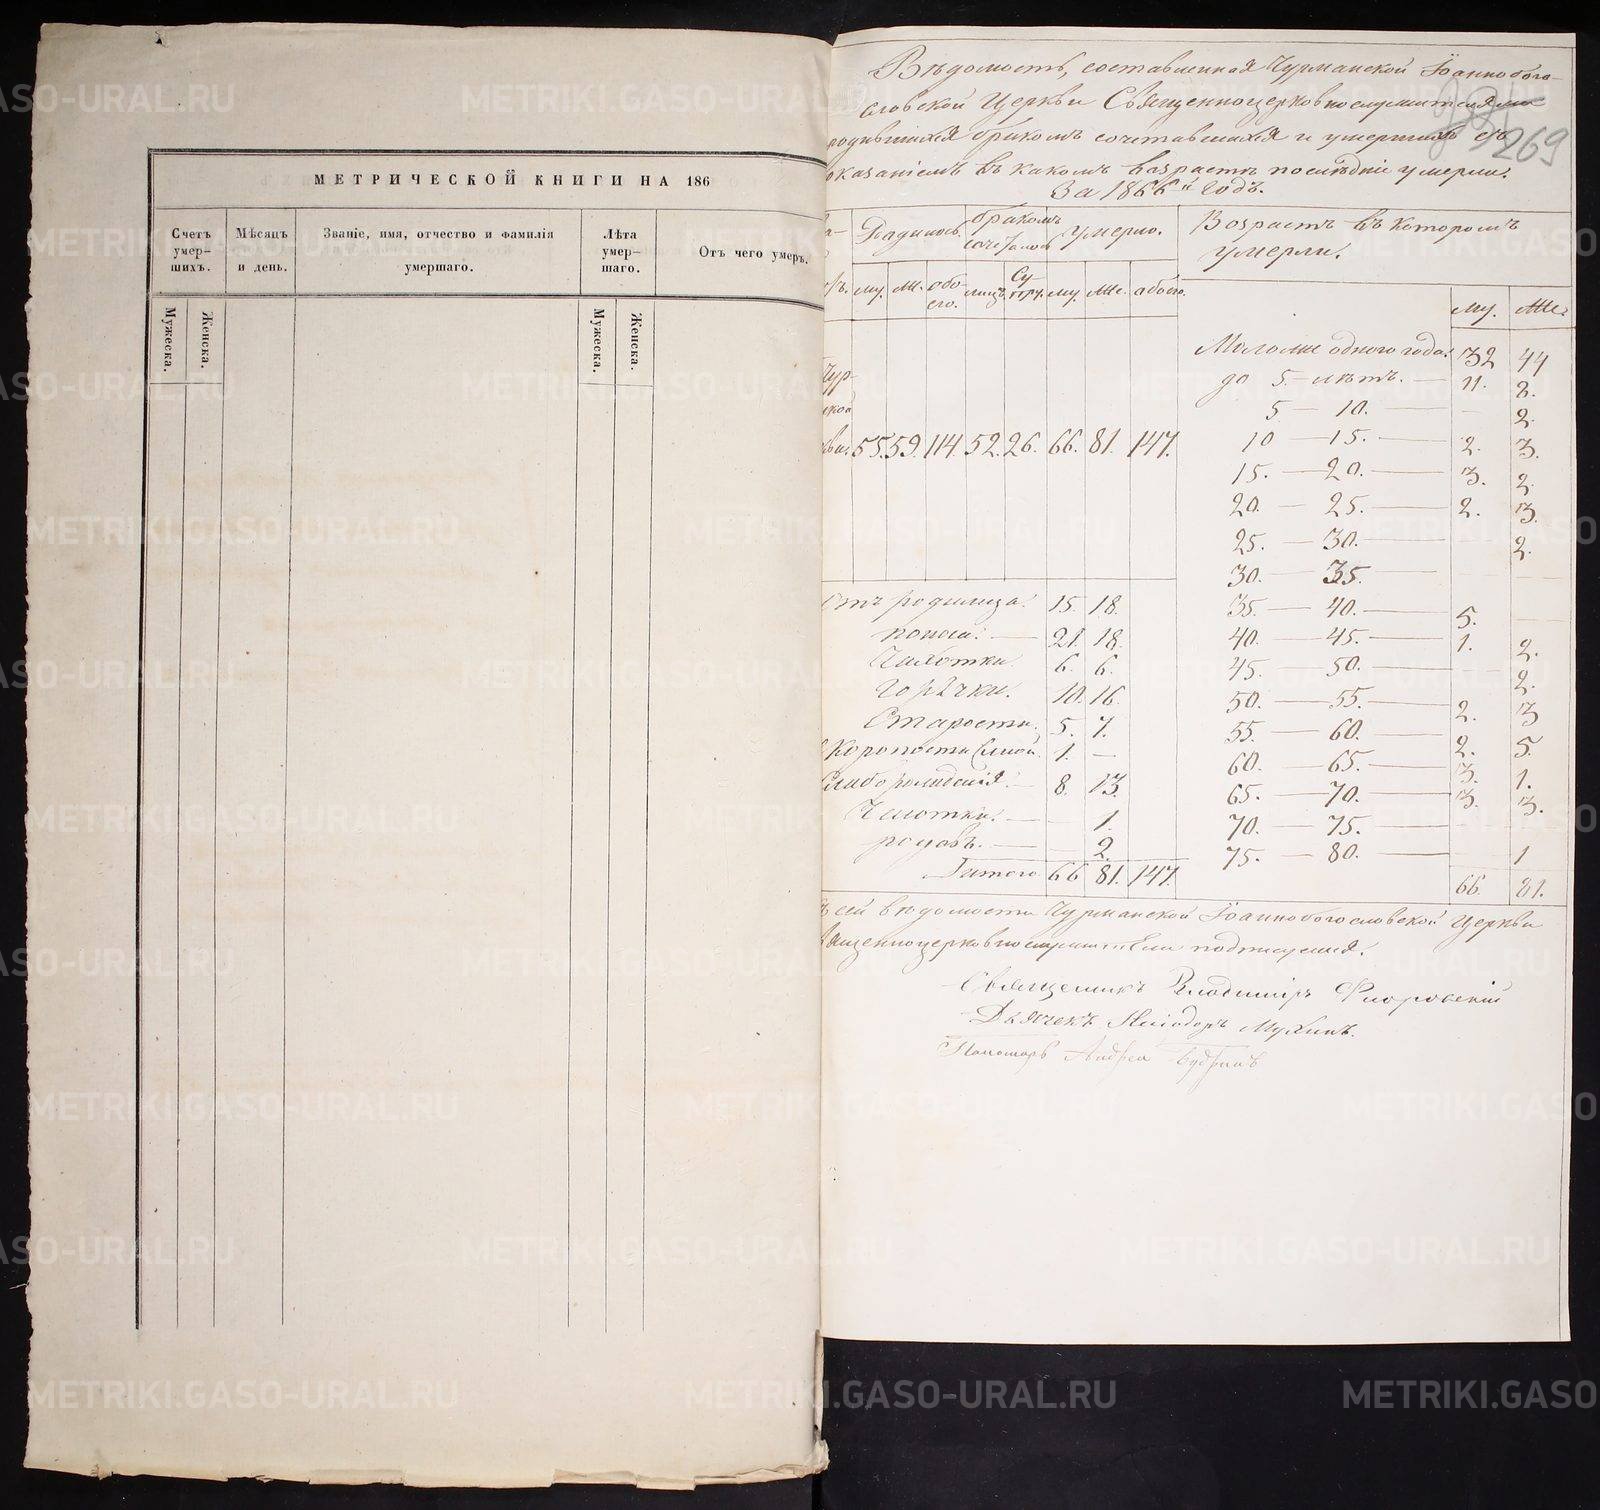 МЕТРИЧЕСКОЙ КНИГИ НА 186
Счетъ умер-шихъ.
Мѣсяцъ и день.
Званіе, имя, отчество и фамилія умершаго.
Лѣта умер-шаго.
Отъ чего умеръ.
Мужеска.
Женска.
Мужеска.
Женска.
Вѣдомость, составленная Чурманской Іоаннобого-
словской Церкви Священноцерковнослужителями
родившихся бракомъ сочетавшихся и умершихъ съ
оказаніемъ въ какомъ возрастѣ послѣдніе умерли.
За 1866й годъ.
269
Родилось. бракомъ сочеталось умерло. Возрастъ въ которомъ
умерли.
му. же. обо-его. лицъ. су-пру. му. же. обоего.
му. же.
Чур-
ской
кви. 55. 59. 114. 52. 26. 66. 81. 147.
Моложе одного года. 32 44
до 5. лѣтъ. — 11. 8.
5 — 10. — 2.
10 — 15. — 2. 3.
15. — 20. — 3. 2.
20. — 25. — 2. 3.
25. — 30. — 2.
30. — 35.
35. — 40. — 5.
40. — 45. — 1. 2.
45. — 50. — 2.
50. — 55. — 2. 3
55. — 60. — 2. 5.
60. — 65. — 3. 1.
65. — 70. — 3. 3.
70. — 75. —
75. — 80. — 1
66. 81.
Отъ родимца. 15. 18.
поноса. — 21. 18.
Чахотки. 6. 6.
горячки. 10. 16.
Старости. 5. 7.
1. —
Слаборожденія. — 8. 13.
— 1.
родовъ. — 2.
Итого 66 81. 147.
сей вѣдомости Чурманской Іоаннобогословской Церкви
священноцерковнослужители подписуемся.
Священникъ Владиміръ Флоровскій
Дьячекъ Мухинъ.
Пономарь Андрей Будринъ
METRIKI.GASO-URAL.RU